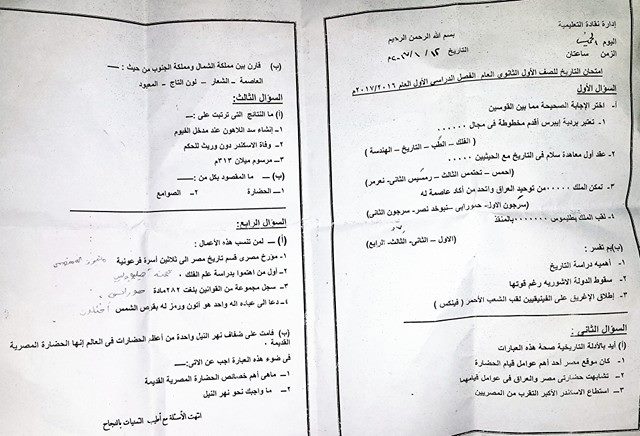 إدارة نقادة التعليمية
بسم الله الرحمن الرحيم
اليوم الخميس
التاريخ ١٢/ ١ /٢٠١٧م
الزمن ساعتان
امتحان التاريخ للصف الأول الثانوى العام الفصل الدراسى الأول العام ٢٠١٧/٢٠١٦م
السؤال الأول
أ- اختر الإجابة الصحيحة مما بين القوسين
١- تعتبر بردية إيبرس أقدم مخطوطة فى مجال ......
( الفلك – الطب – التاريخ – الهندسة )
٢- عقد أول معاهدة سلام فى التاريخ مع الحيثيين .....
(احمس – تحتمس الثالث – رمسيس الثانى- نعرمر)
٣- تمكن الملك ......من توحيد العراق واتخذ من أكاد عاصمة له
(سرجون الاول- حمورابى – نبوخذ نصر- سرجون الثانى)
٤- لقب الملك بطليموس .......بالمنقذ
(الاول – الثانى- الثالث- الرابع)
(ب)بم تفسر :
١- أهمية دراسة التاريخ
٢- سقوط الدولة الاشورية رغم قوتها
٣- إطلاق الإغريق على الفينيقيين لقب الشعب الأحمر ( فينكس )
السؤال الثانى :
(أ) أيد بالأدلة التاريخية صحة هذه العبارات
١- كان موقع مصر أحد أهم عوامل قيام الحضارة
٢- تشابهت حضارتى مصر والعراق فى عوامل قيامهما
٣- استطاع الاسكندر الأكبر التقرب من المصريين
(ب) قارن بين مملكة الشمال ومملكة الجنوب من حيث :ــ
العاصمة – الشعار – لون التاج – المعبود
السؤال الثالث:
(أ) ما النتائج التى ترتبت على :ــ
١- إنشاء سد اللاهون عند مدخل الفيوم
٢- وفاة الاسكندر دون وريث للحكم
٣- مرسوم ميلان ٣١٣م
(ب) ــ ما المقصود بكل من :ــ
١- الحضارة ٢- الصوامع
السؤال الرابع:
(أ) ــ لمن تنسب هذه الأعمال :
١- مؤرخ مصرى قسم تاريخ مصر الى ثلاثين أسرة فرعونية
٢- أول من اهتموا بدراسة علم الفلك
٣- سجل مجموعة من القوانين بلغت ٢٨٢مادة
٤- دعا الى عباده اله واحد هو آتون ورمز له بقرص الشمس
(ب) قامت على ضفاف نهر النيل واحدة من أعظم الحضارات فى العالم إنها الحضارة المصرية
القديمة .
فى ضوء هذه العبارة اجب عن الاتى:ــ
١ــ ماهى أهم خصائص الحضارة المصرية القديمة
٢ــ ما واجبك نحو نهر النيل
انتهت الأسئلة مع أطيب التمنيات بالنجاح